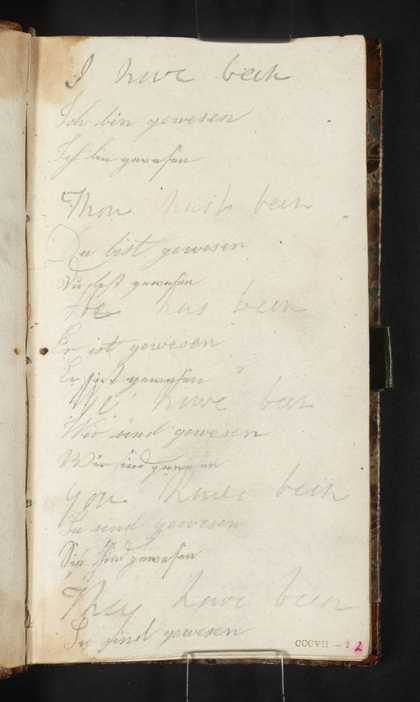 I have been
Ich bin gewesen
Ich bin gewesen
Thou hast been
Du bist gewesen
Du bist gewesen
He has been
Er ist gewesen
Er ist gewesen
We have been
Wir sind gewesen
Wir sind gewesen
you have been
Sie sind gewesen
Sie sind gewesen
They have been
Sie sind gewesen
CCCVII — 1 2